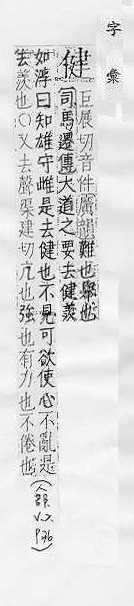 字彙
健
巨展切音件廣韻難也舉也
司馬遷傳大道之要去健羨
如淳曰知雄守雌是去健也不見可欲使心不亂是
去羨也○又去聲渠建切亢也強也有力也不倦也
(人部 V.2. P36)